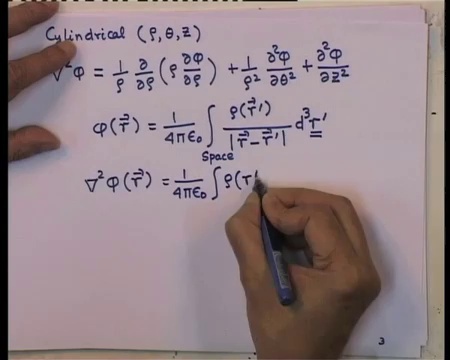 Cylindrical (ρ, θ, z)
∇²φ = 1/ρ ∂/∂ρ (ρ ∂φ/∂ρ) + 1/ρ² ∂²φ/∂θ² + ∂²φ/∂z²
φ(r⃗) = 1/4πϵ₀ ∫ ρ(r⃗′)/|r⃗ − r⃗′| d³r′
Space
∇²φ(r⃗) = 1/4πϵ₀ ∫ ρ(r′
3